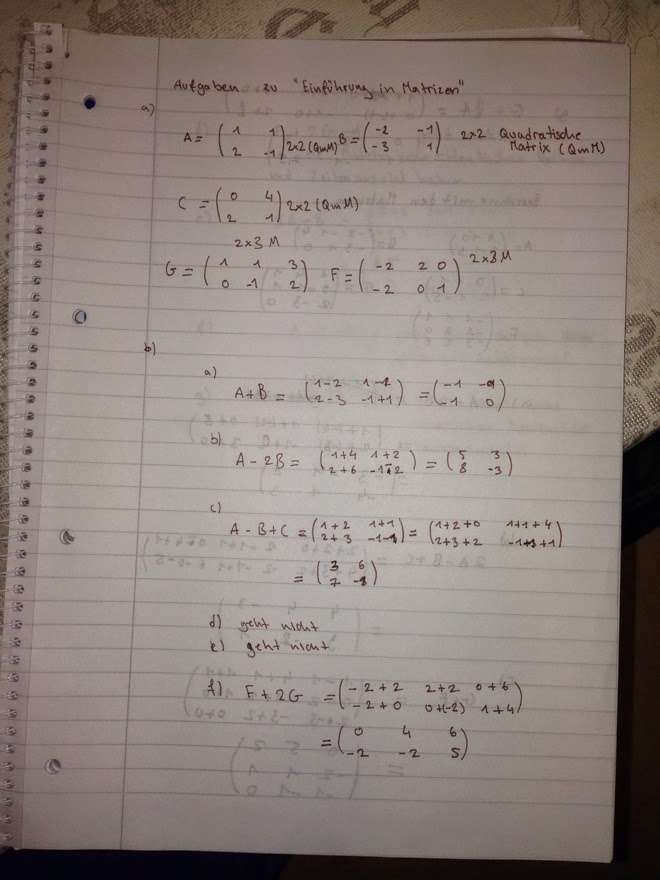 Aufgaben zu "Einführung in Matrizen"
a)
A = ( 1 1 ) 2x2 (QmM) B = ( -2 -1 ) 2x2 Quadratische
( 2 -1 ) ( -3 1 ) Matrix (QmM)
C = ( 0 4 ) 2x2 (QmM)
( 2 1 )
2x3 M
G = ( 1 1 3 ) F = ( -2 2 0 ) 2x3 M
( 0 -1 2 ) ( -2 0 1 )
b)
a)
A+B = ( 1-2 1-1 ) = ( -1 0 )
( 2-3 -1+1 ) ( -1 0 )
b)
A - 2B = ( 1+4 1+2 ) = ( 5 3 )
( 2+6 -1-2 ) ( 8 -3 )
c)
A - B + C = ( 1+2 1+1 ) = ( 1+2+0 1+1+4 )
( 2+3 -1-1 ) ( 2+3+2 -1-1+1 )
= ( 3 6 )
( 7 -1 )
d) geht nicht
e) geht nicht
f) F + 2G = ( -2+2 2+2 0+6 )
( -2+0 0+(-2) 1+4 )
= ( 0 4 6 )
( -2 -2 5 )